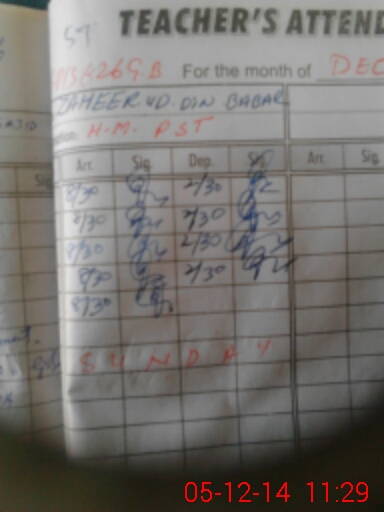 ST
TEACHER'S ATTEND
For the month of DEC
ZAHEER UD. DIN BABAR
H.M. PST
Arr. Sig. Dep. Sig. Arr. Sig.
8/30 2/30
8/30 2/30
8/30 2/30
8/30 2/30
8/30
SUNDAY
05-12-14 11:29